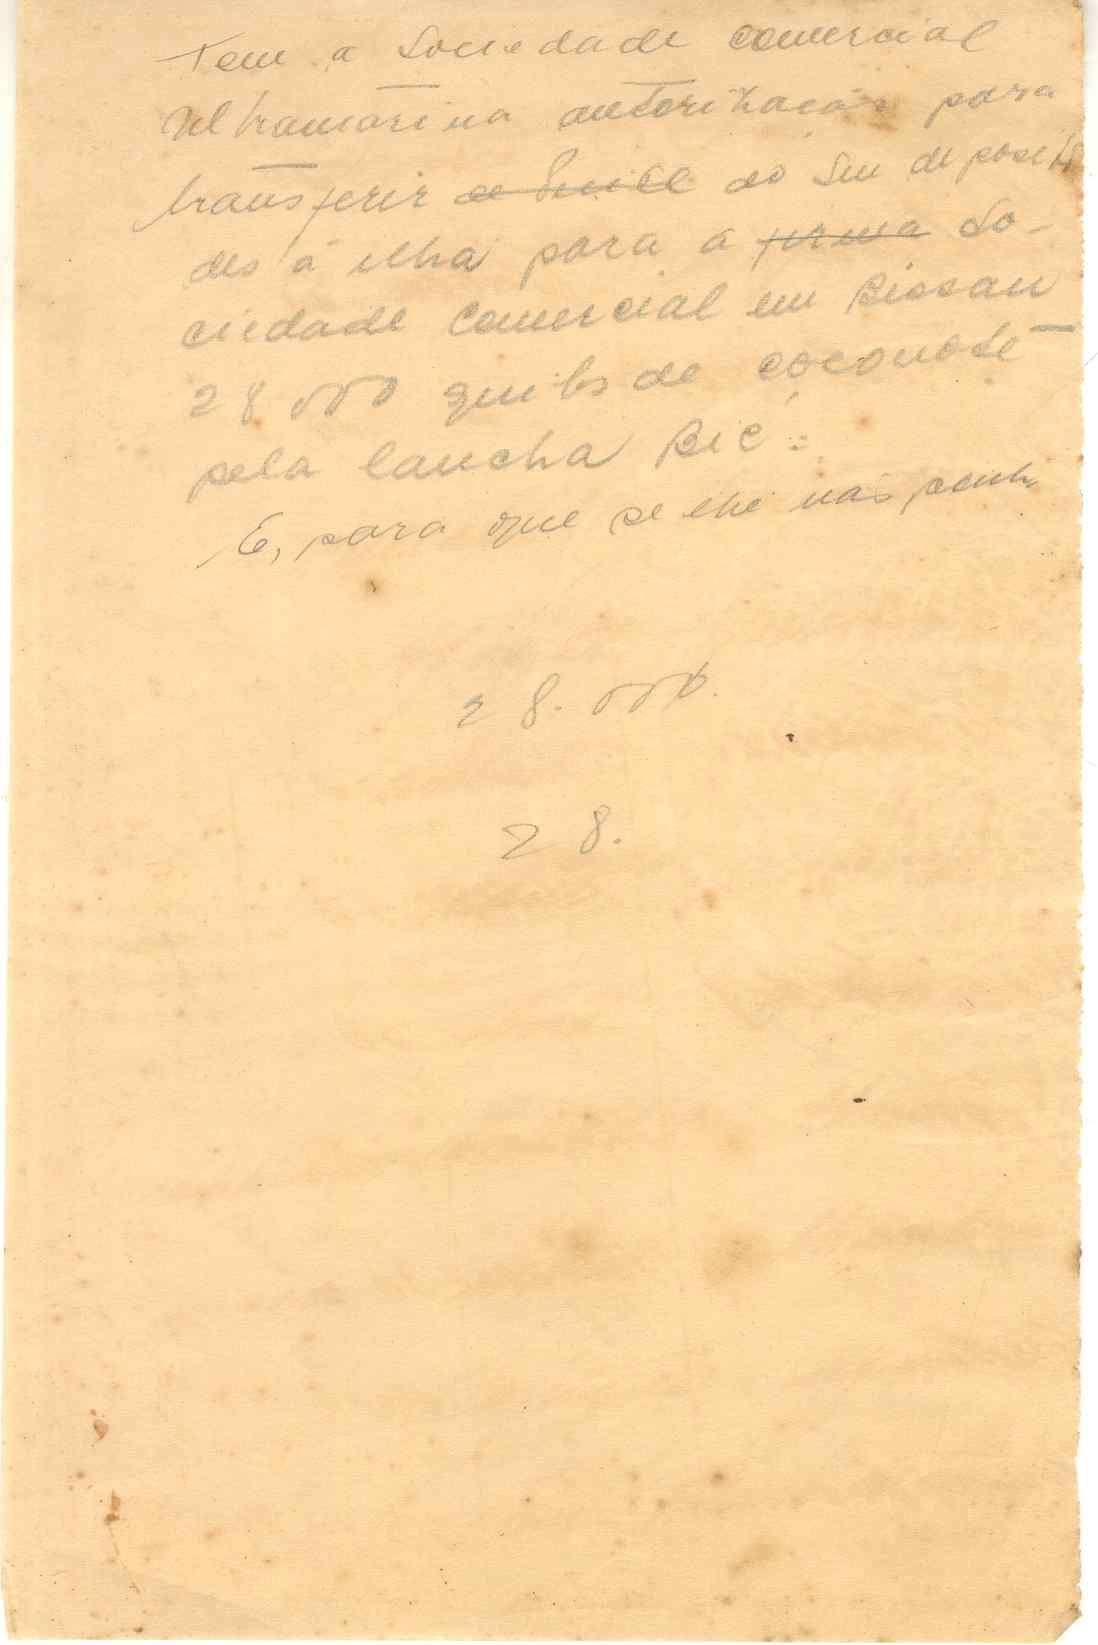 Tem a Sociedade comercial
Ultramarina autorização para
transferir do seu deposito
desta ilha para a firma So-
ciedade Comercial em Bissau
28000 quilos de coconote
pela lancha Bié:
E, para que se lhe não ponha
28.000.
28.